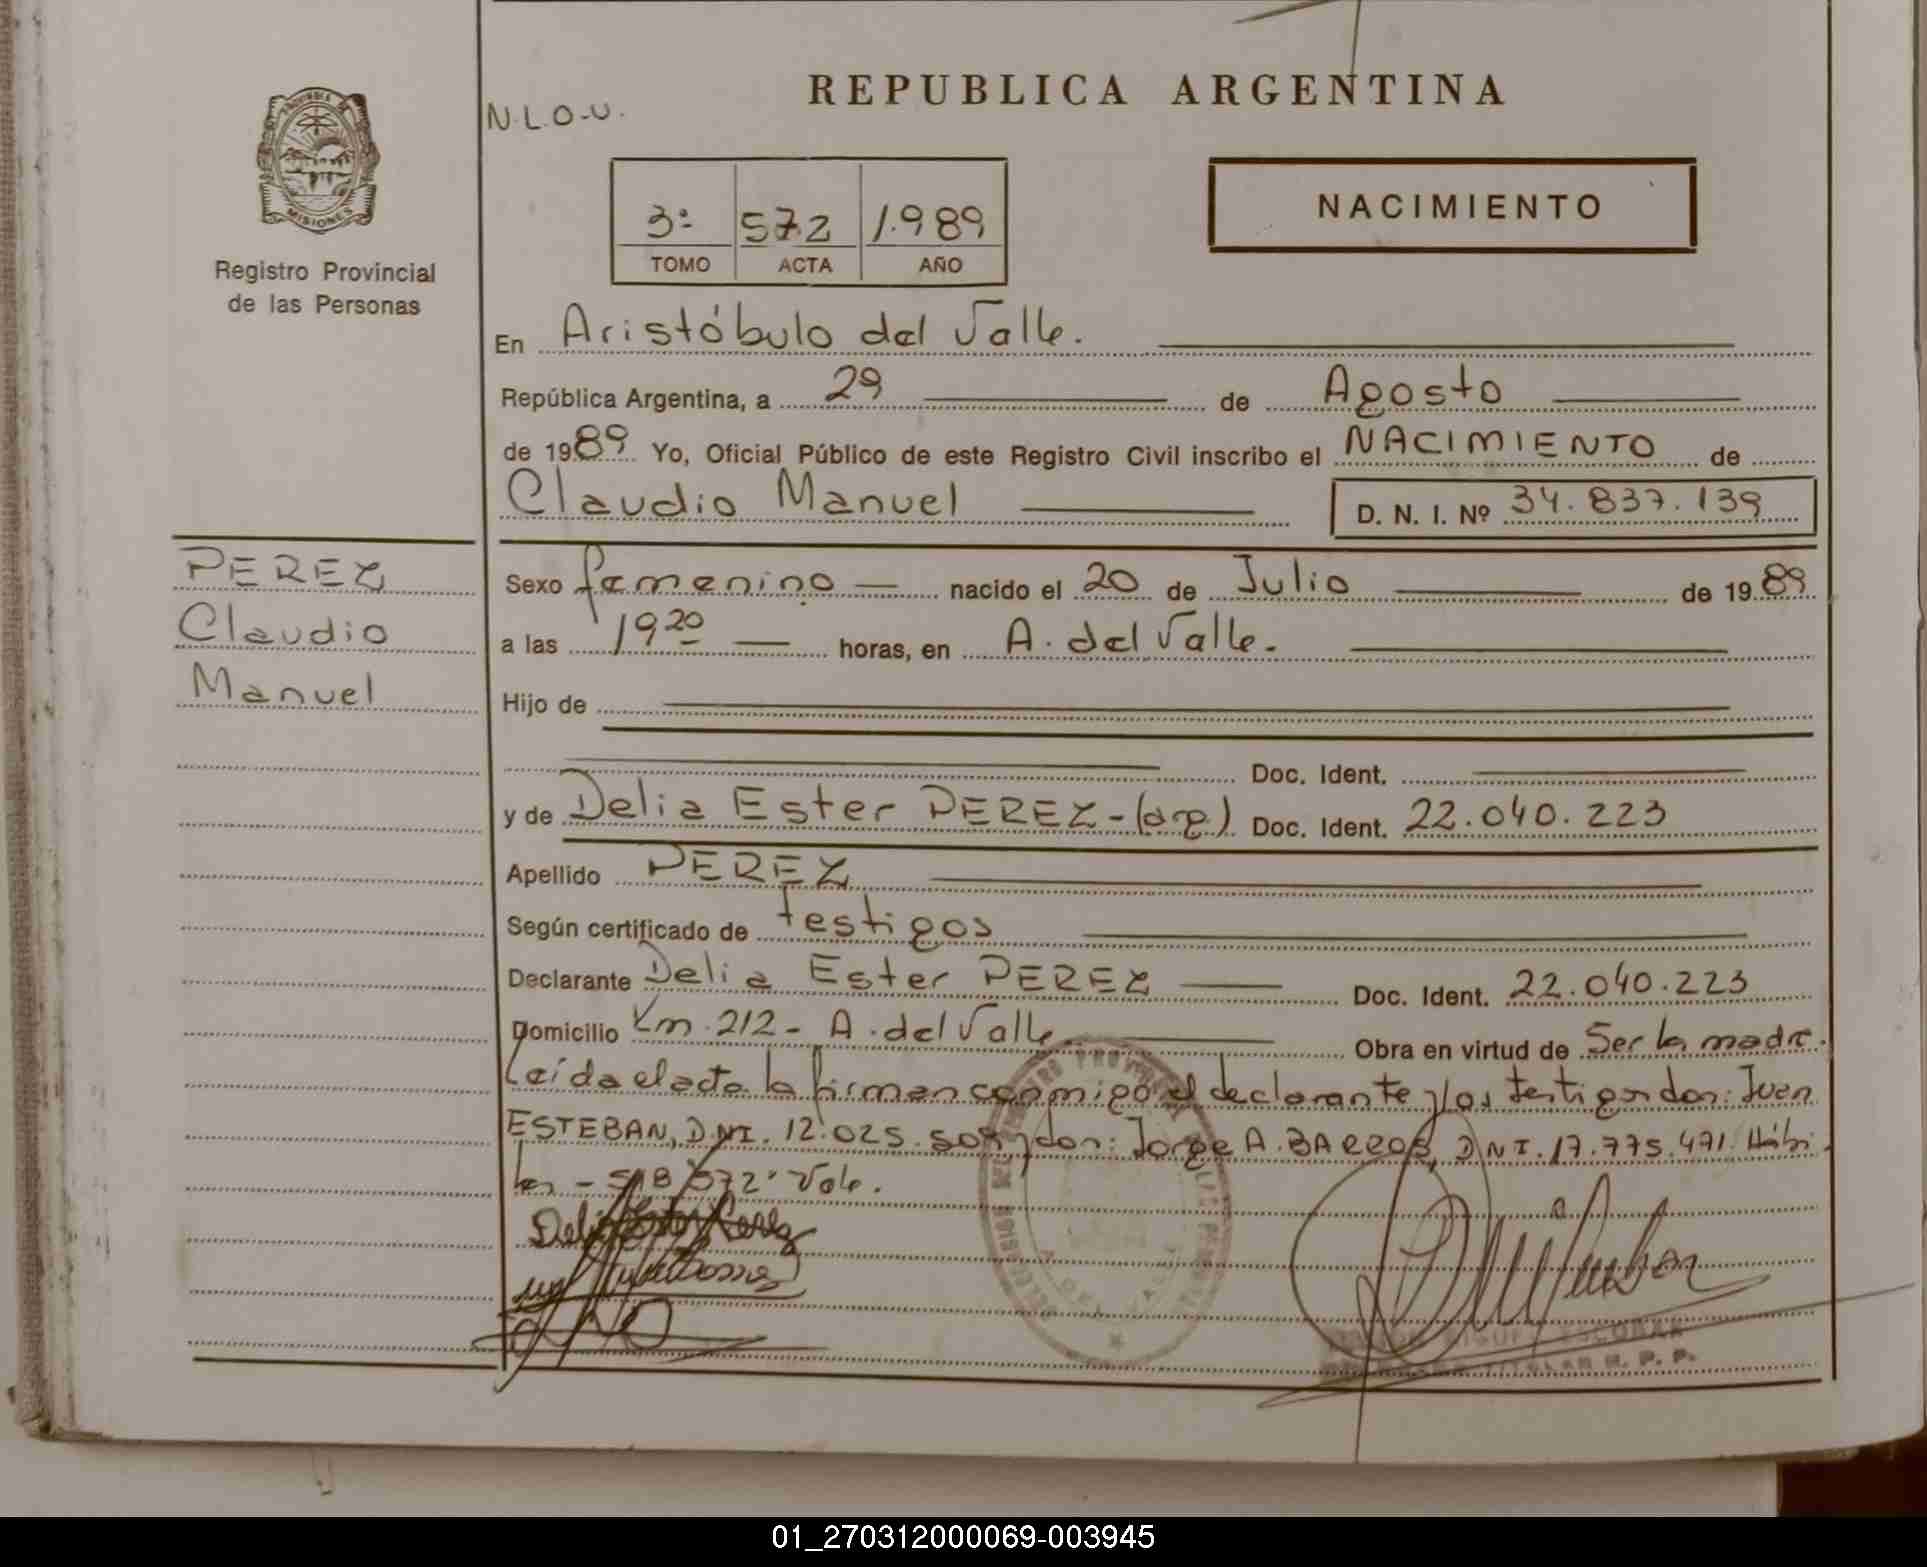 REPUBLICA ARGENTINA
N.L.O.U.
PROVINCIA DE
MISIONES
Registro Provincial
de las Personas
3º 572 1.989
TOMO ACTA AÑO
NACIMIENTO
En Aristóbulo del Valle.
República Argentina, a 29 de Agosto
de 1989 Yo, Oficial Público de este Registro Civil inscribo el NACIMIENTO de
Claudio Manuel D. N. I. Nº 34.837.139
PEREZ
Claudio
Manuel
Sexo femenino nacido el 20 de Julio de 1989
a las 19 20 horas, en A. del Valle.
Hijo de
Doc. Ident.
y de Delia Ester PEREZ-(arg.) Doc. Ident. 22.040.223
Apellido PEREZ
Según certificado de testigos
Declarante Delia Ester PEREZ Doc. Ident. 22.040.223
Domicilio Km. 212- A. del Valle Obra en virtud de Ser la madre.
Leída el acta la firman conmigo el declarante y los testigos don: Juan
ESTEBAN, D.N.I. 12.025. y don: Jorge A. BARROS, D.N.I. 17.775.471. Hábi
les - 572. Vale.
Delia Ester Perez
ESCOBAR
TITULAR R. P. P.
01_270312000069-003945